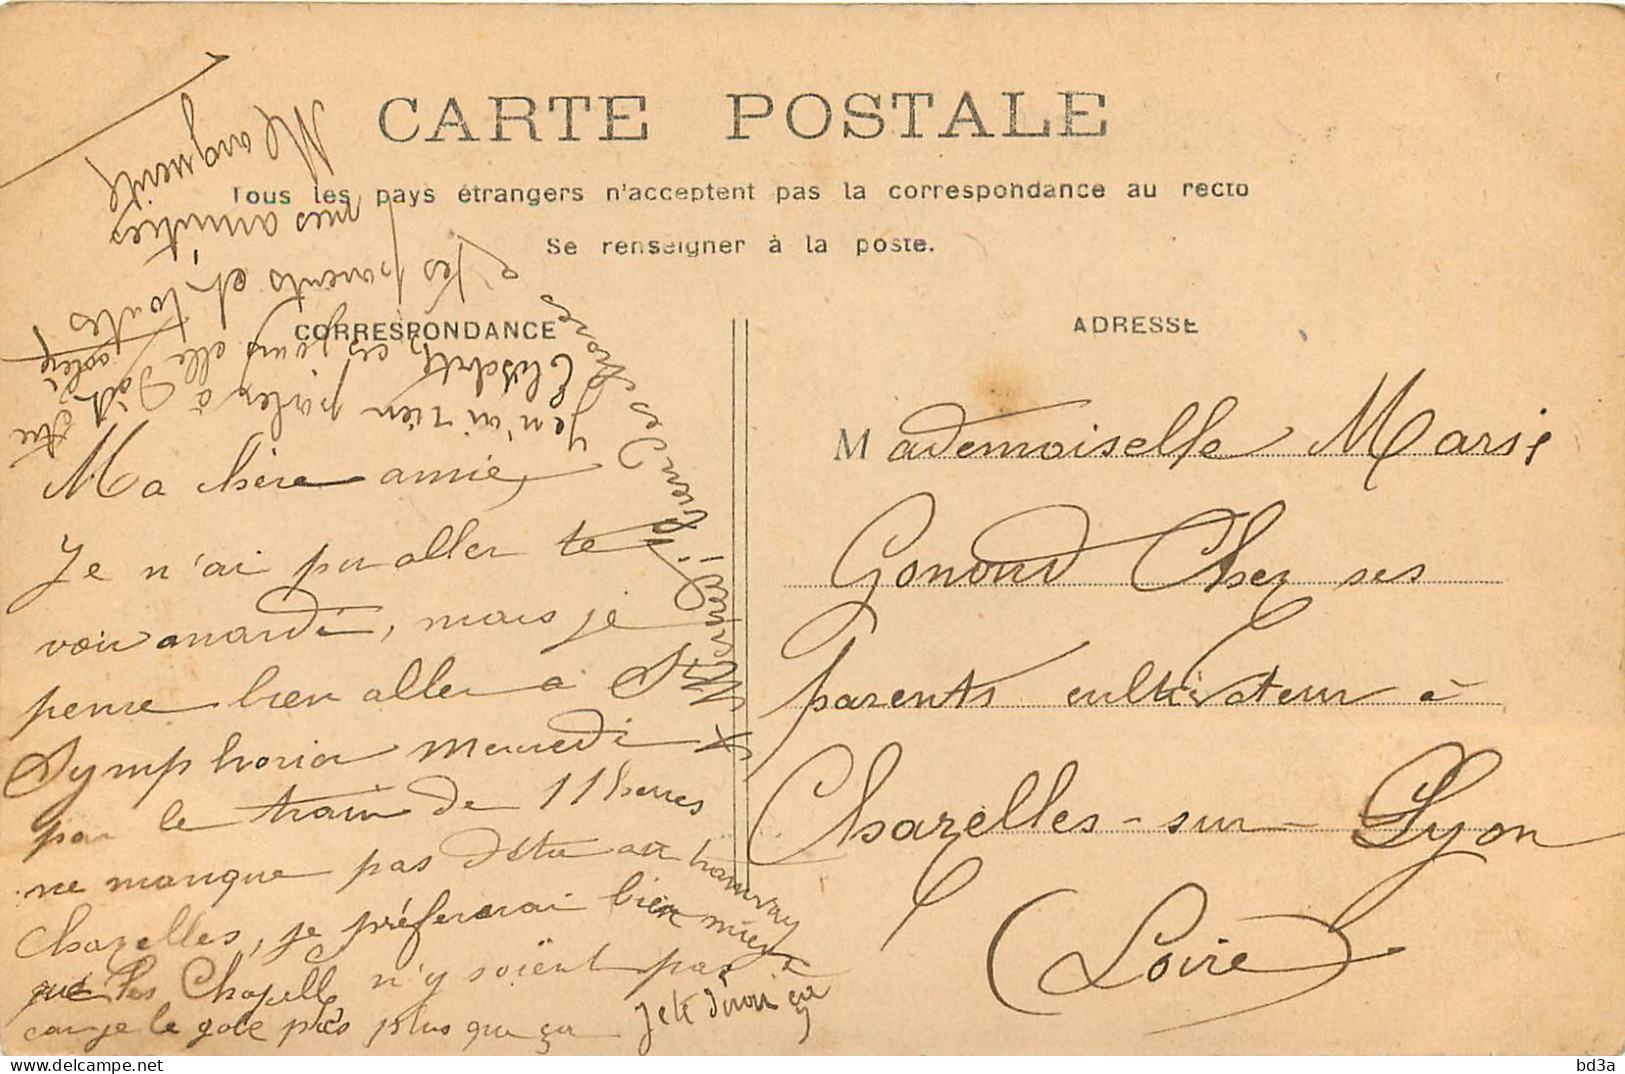 CARTE POSTALE
Tous les pays étrangers n'acceptent pas la correspondance au recto
Se renseigner à la poste.
CORRESPONDANCE
ADRESSE
Ma chère amie,
Je n'ai pu aller te
voir mardi, mais je
pense bien aller à St
Symphorien mercredi
par le train de 11 heures
ne manque pas d'être au tramway
Chazelles, je préfererai bien mieux
que les Chapelle n'y soient pas
car je le gobe pas plus que ça
Je te dirai ça
Je n'ai rien parler à
Elisabeth, ces jours elle doit être
tes parents et toutes
mes amitiés
Marguerite
Mademoiselle Marie
Gonond Chez ses
parents cultivateur à
Chazelles-sur-Lyon
(Loire)
bd3a